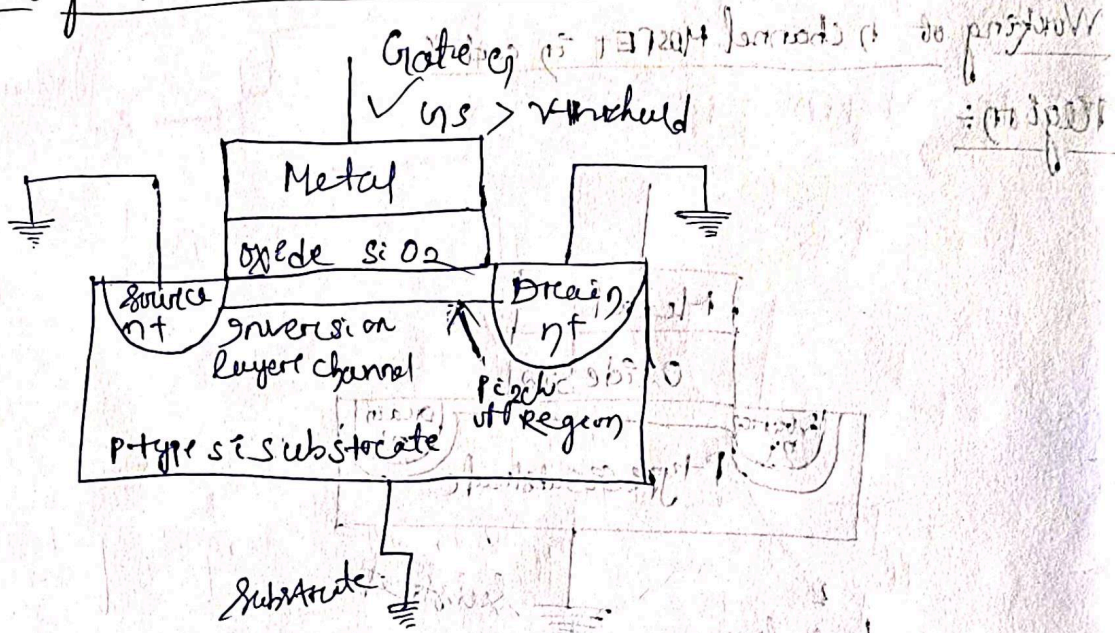 Gate G
V GS > Vthreshold
Metal
oxide SiO2
Source
n+
Drain
n+
Inversion
layer channel
Pinch
off Region
P-type si substrate
Substrate